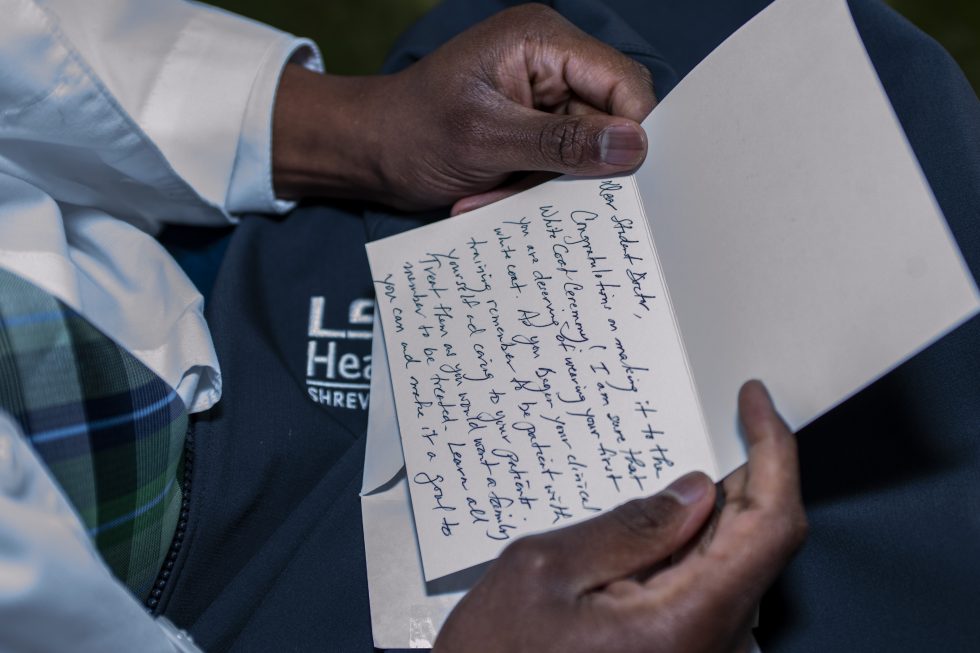 Dear Student Doctor,
Congratulations on making it to the
White Coat Ceremony! I am sure that
you are deserving of wearing your first
white coat. As you begin your clinical
training remember to be patient with
yourself and caring to your patients.
Treat them as you would want a family
member to be treated. Learn all
you can and make it a goal to
LS
Hea
SHREV